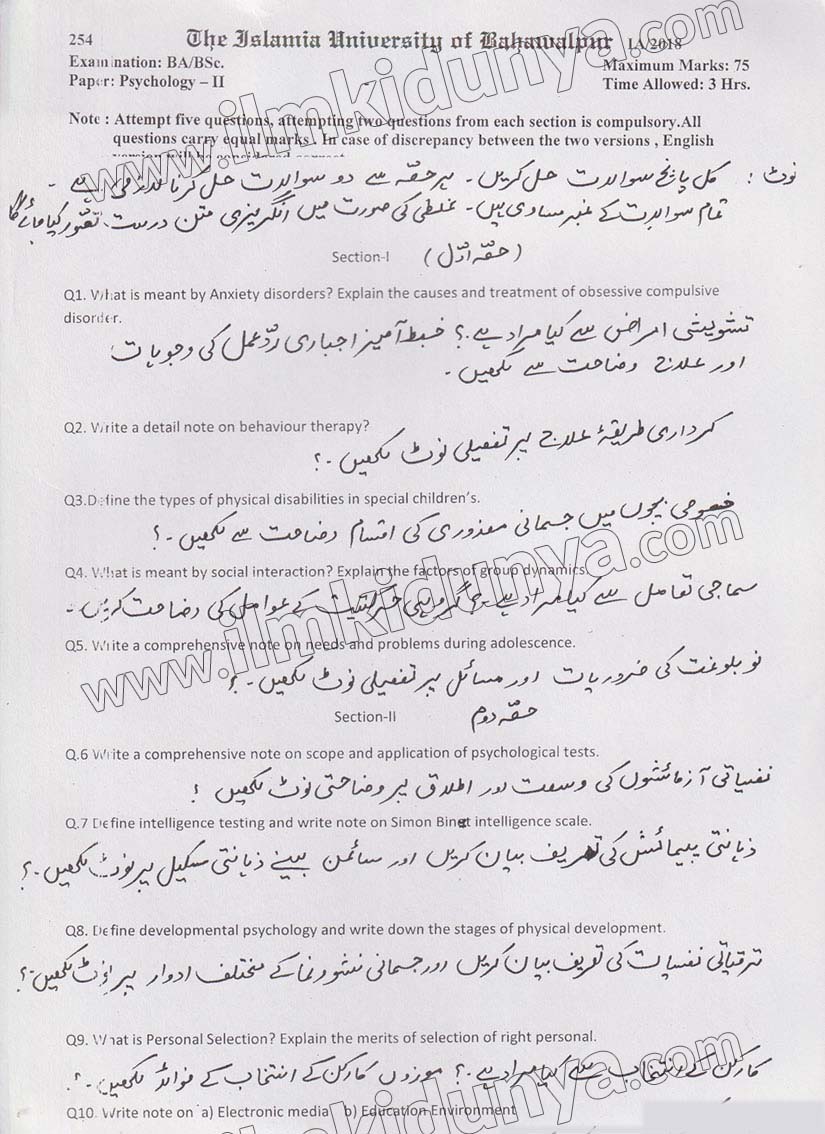 254 The Islamia University of Bahawalpur IA/2018
Examination: BA/BSc. Maximum Marks: 75
Paper: Psychology – II Time Allowed: 3 Hrs.
Note : Attempt five questions, attempting two questions from each section is compulsory.All
questions carry equal marks . In case of discrepancy between the two versions , English
نوٹ : کل پانچ سوالات حل کریں۔ ہر حصّہ سے دو سوالات حل کرنا لازمی ہے ۔
تمام سوالات کے نمبر مساوی ہیں۔ غلطی کی صورت میں انگریزی متن درست تصّور کیا جائے گا
Section-I (حصّہ اوّل)
Q1. What is meant by Anxiety disorders? Explain the causes and treatment of obsessive compulsive
disorder.
تشویشی امراض سے کیا مراد ہے ۔؟ خبط آمیز اجباری ردّ عمل کی وجوہات
اور علاج وضاحت سے لکھیں ۔
Q2. Write a detail note on behaviour therapy?
کرداری طریقۂ علاج پر تفصیلی نوٹ لکھیں ۔؟
Q3.Define the types of physical disabilities in special children's.
خصوصی بچوں میں جسمانی معذوری کی اقسام وضاحت سے لکھیں ۔؟
Q4. What is meant by social interaction? Explain the factors of group dynamics.
سماجی تعامل سے کیا مراد ہے ۔؟ گروہی حرکیت کے عوامل کی وضاحت کریں۔
Q5. Write a comprehensive note on needs and problems during adolescence.
نو بلوغت کی ضروریات اور مسائل پر تفصیلی نوٹ لکھیں ۔؟
Section-II حصّہ دوم
Q.6 Write a comprehensive note on scope and application of psychological tests.
نفسیاتی آزمائشوں کی وسعت اور اطلاق پر وضاحتی نوٹ لکھیں ؟
Q.7 Define intelligence testing and write note on Simon Binet intelligence scale.
ذہانتی پیمائش کی تعریف بیان کریں اور سائمن بینے ذہانتی سکیل پر نوٹ لکھیں ۔؟
Q8. Define developmental psychology and write down the stages of physical development.
ترقیاتی نفسیات کی تعریف بیان کریں اور جسمانی نشوونما کے مختلف ادوار پر نوٹ لکھیں ؟
Q9. What is Personal Selection? Explain the merits of selection of right personal.
کارکن کے انتخاب سے کیا مراد ہے ۔؟ موزوں کارکن کے انتخاب کے فوائد لکھیں ۔؟
Q10. Write note on a) Electronic media b) Education Environment
www.ilmkidunya.com
www.ilmkidunya.com
www.ilmkidunya.com
www.ilmkidunya.com